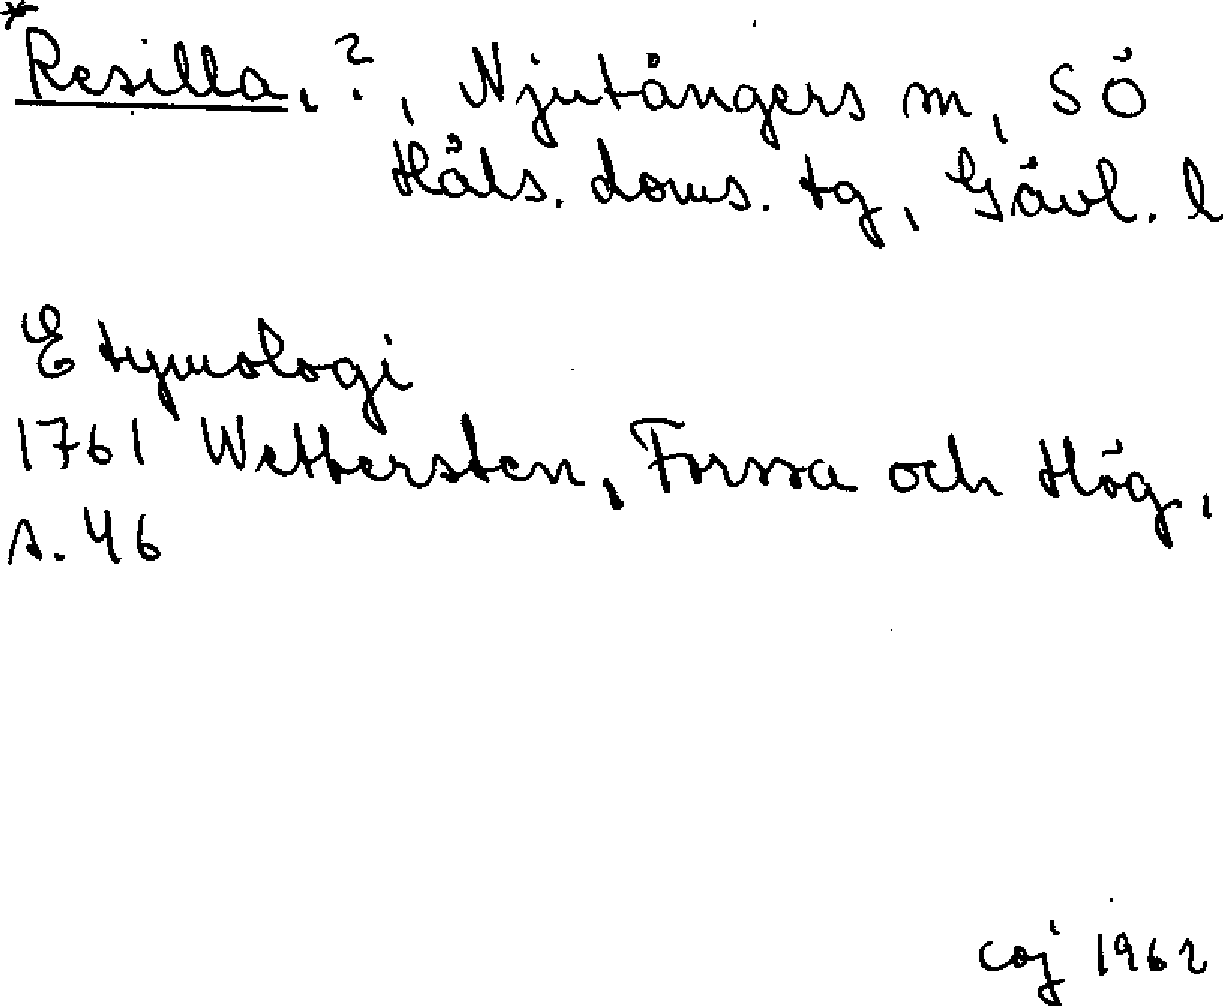 *Resilla, ?, Njutångers sn, SÖ
Häls. doms. tg, Gävl. l
Etymologi
1761 Wettersten, Forssa och Hög,
s. 46
coj 1962